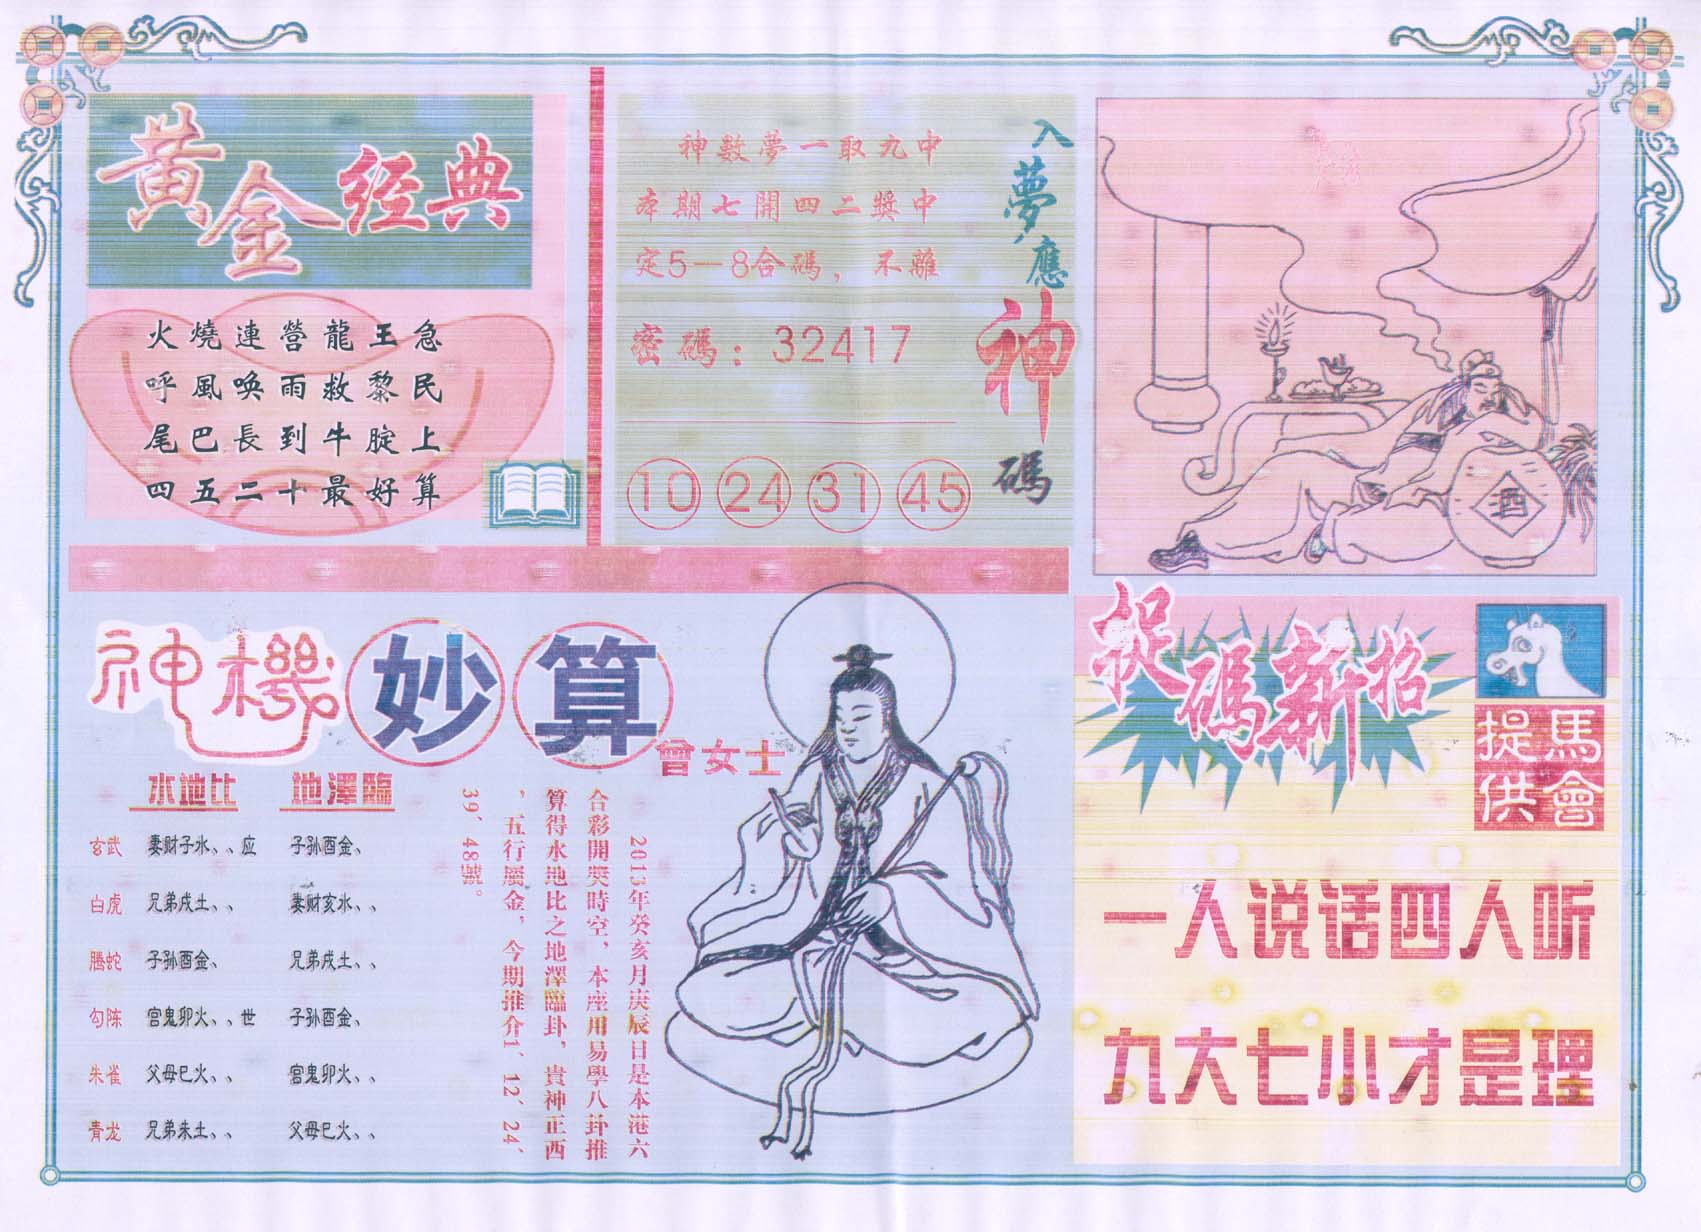 黄金经典
火燒連營龍王急
呼風喚雨救黎民
尾巴長到牛腚上
四五二十最好算
神數夢一取九中
本期七開四二獎中
定5—8合碼，不離
密碼：32417
10 24 31 45
入夢應神碼
酒
神機妙算
曾女士
水地比 地澤臨
玄武 妻财子水、、应 子孙酉金、
白虎 兄弟戌土、、 妻财亥水、、
螣蛇 子孙酉金、 兄弟戌土、、
勾陈 官鬼卯火、、世 子孙酉金、
朱雀 父母巳火、、 官鬼卯火、、
青龙 兄弟未土、、 父母巳火、、
2013年癸亥月庚辰日是本港六
合彩開獎時空，本座用易學八卦推
算得水地比之地澤臨卦，貴神正西
，五行屬金，今期推介1、12、24、
39、48號。
捉碼新招
馬會
提供
一人说话四人听
九大七小才是理